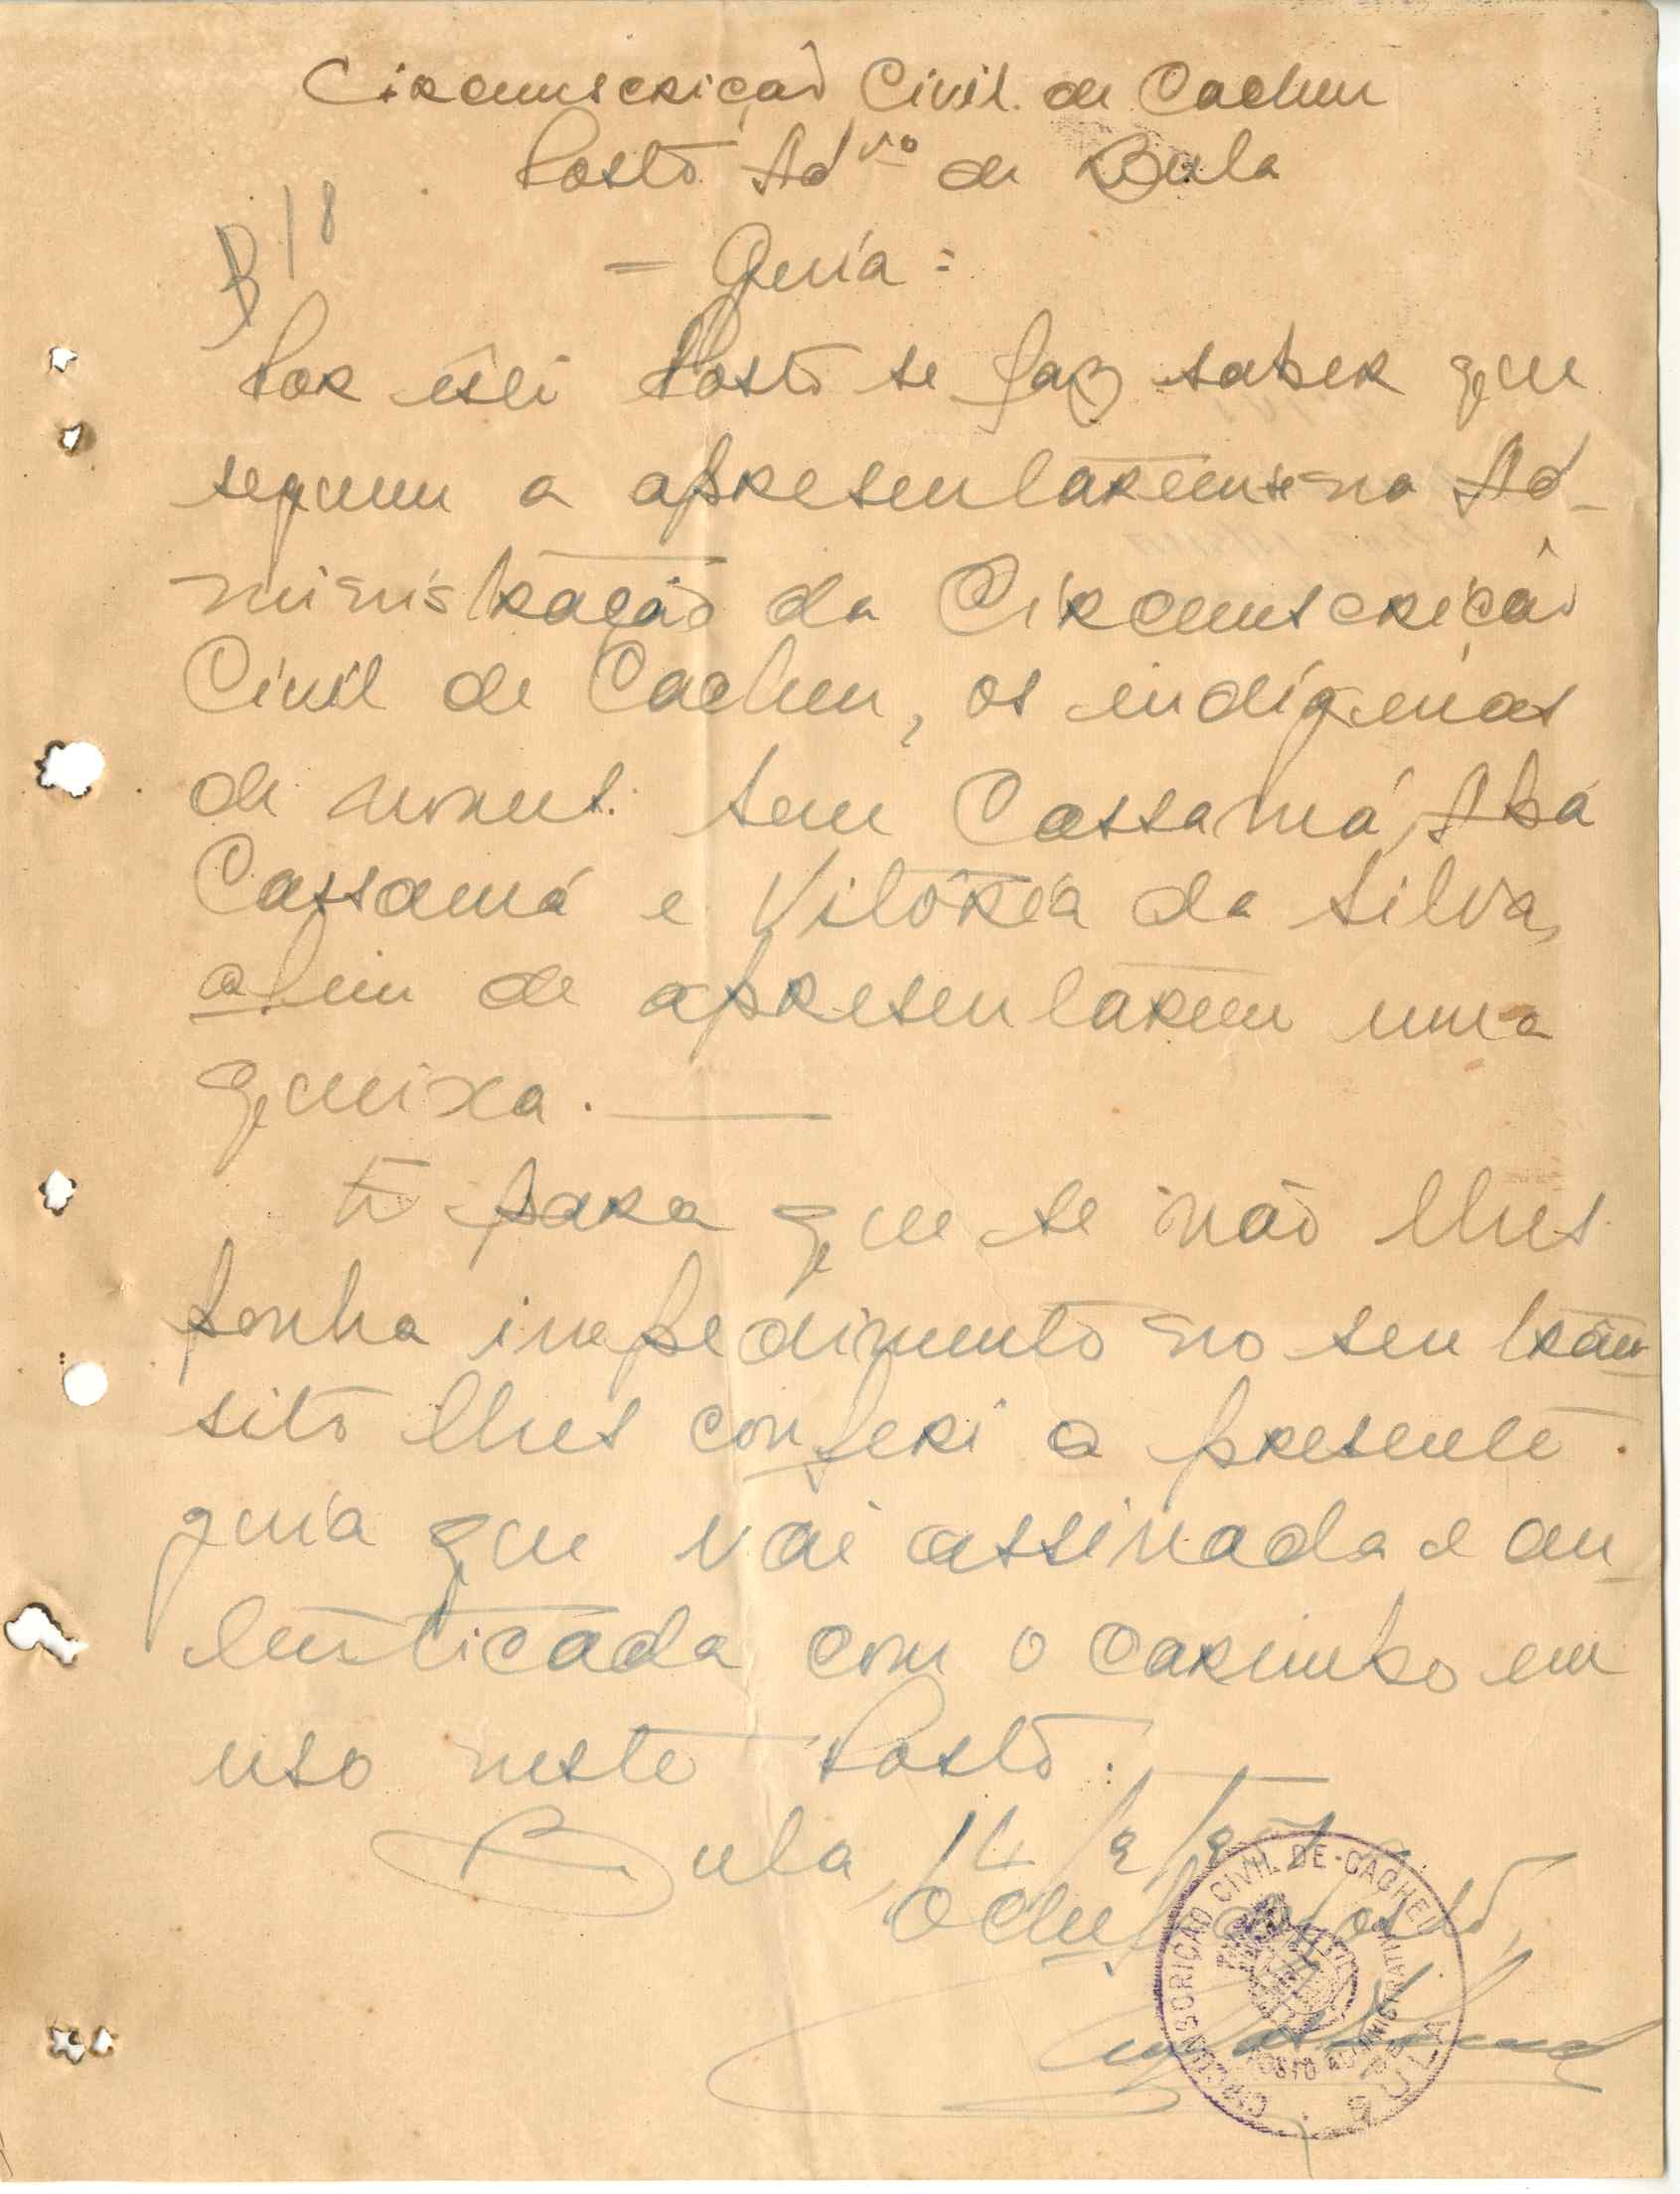 Circunscrição Civil de Cacheu
Posto Ad.vo de Bula
B/18
= Guia =
Por êste Posto se faz saber que
seguem a apresentarem-se na Ad-
ministração da Circunscrição
Civil de Cacheu, os indígenas
de nomes: Sene Cassamá, Aba
Cassamá e Vitória da Silva,
afim de apresentarem uma
queixa.
E para que se não lhes
ponha impedimento no seu trân-
sito lhes conferi a presente
guia que vai assinada e au-
tenticada com o carimbo em
uso neste Posto.
Bula, 14/9/
O Chefe do Posto,
CIRCUNSCRIÇÃO CIVIL DE-CACHEU
POSTO ADMINISTRATIVO
DE
BULA